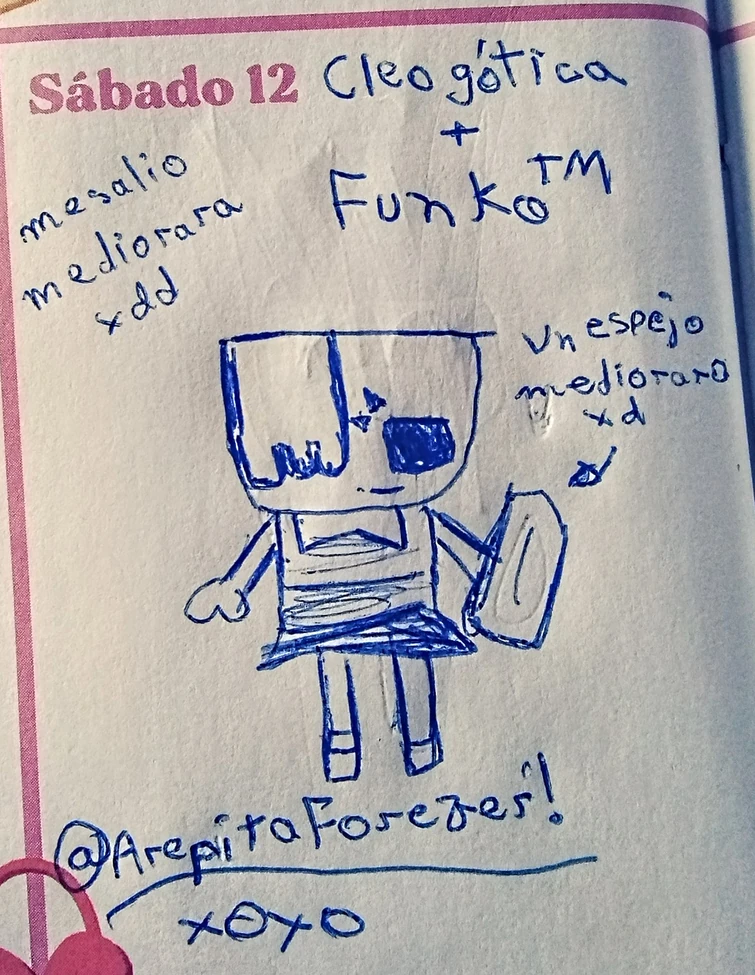 Sábado 12
Cleo gótica
+
Funko™
mesalio
mediorara
xdd
Un espejo
medioraro
xd
@ArepitaForezes!
xoxo